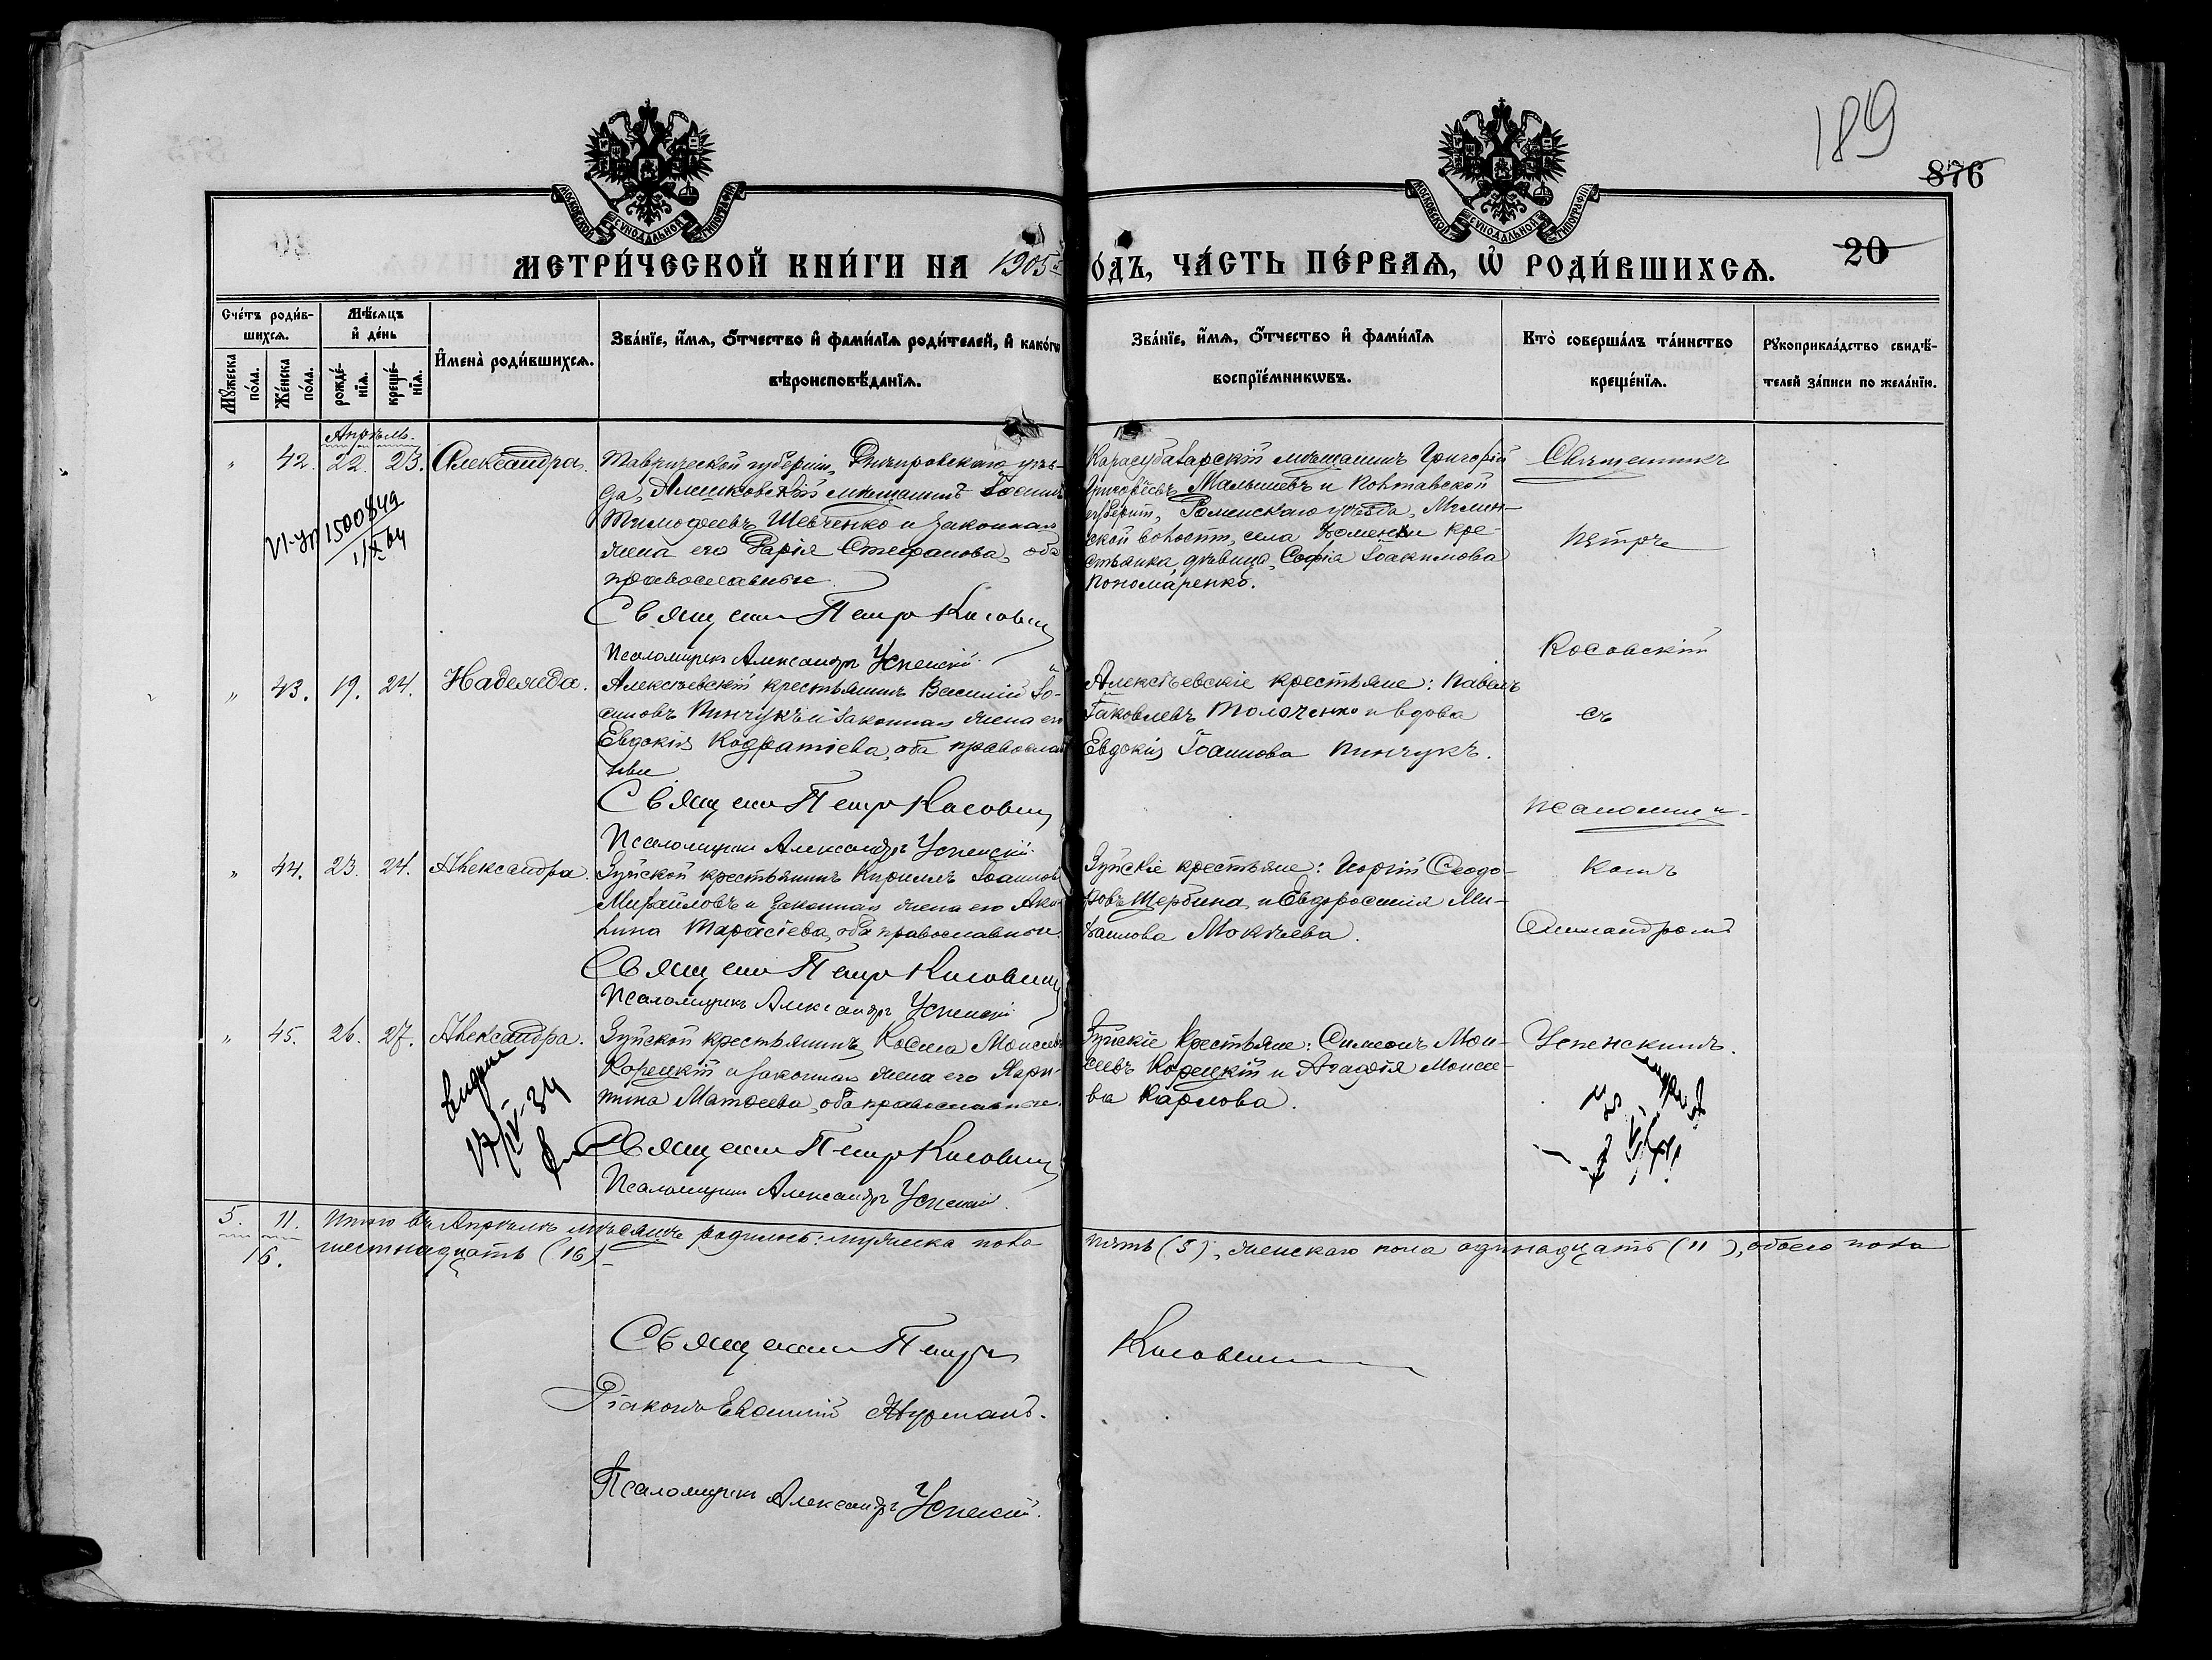 189
876
МОСКОВСКОЙ СѴНОДАЛЬНОЙ ТИПОГРАФІИ
МОСКОВСКОЙ СѴНОДАЛЬНОЙ ТИПОГРАФІИ
МЕТРИ́ЧЕСКОЙ КНИ́ГИ НА 1905
О́ДЪ, ЧА́СТЬ ПЕ́РВАѦ, Ѿ РОДИ́ВШИХСѦ.
20
Сче́тъ роди́в-
шихсѧ.
Мѣ́сѧцъ
и҆ де́нь
Мꙋ́жеска
по́ла.
Же́нска
по́ла.
рожде́-
нїѧ.
креще́-
нїѧ.
И҆мена̀ роди́вшихсѧ.
Зва́нїе, и҆́мѧ, ѻ҆́тчество и҆ фами́лїѧ роди́телей, и҆ како́гѡ
вѣроисповѣ́данїѧ.
Зва́нїе, и҆́мѧ, ѻ҆́тчество и҆ фами́лїѧ
воспрїе́мникѡвъ.
Кто̀ соверша́лъ та́инство
креще́нїѧ.
Рꙋкоприкла́дство свидѣ́-
телей за́писи по жела́нїю.
Апрѣль.
" 42. 22. 23. Александра.
1500849
1/IX 64
Таврической губерніи, Днѣпровскаго уѣз-
да, Алешковскій мѣщанинъ Іосифъ
Тимофеевъ Шевченко и законная
жена его Дарія Стефанова, оба
православные.
Священ Петр Косовскій
Псаломщикъ Александръ Успенскій.
Карасубазарскій мѣщанинъ Григорій
Григорьевъ Малышевъ и Полтавской
губерніи, Роменскаго уѣзда,
ской волости, села кре-
стьянка, дѣвица, Софія Іоакимова
Пономаренко.
Священникъ
Петръ
Косовскій
" 43. 19. 24. Надежда.
Алексѣевскій крестьянинъ Василій Іо-
сифовъ Пинчукъ и законная жена его
Евдокія Кодратіева, оба православ
ные
Священ Петр Косовскій
Псаломщикъ Александръ Успенскій.
Алексѣевскіе крестьяне: Павелъ
Іаковлевъ Толоченко и вдова
Евдокія Іоаннова Пинчукъ.
съ
псаломщи-
" 44. 23. 24. Александра.
Зуйской крестьянинъ Кириллъ Іоаннов
Михайловъ и законная жена его Аку-
лина Тарасіева, оба православные.
Священ Петр Косовскій
Псаломщикъ Александръ Успенскій
Зуйскіе крестьяне: Георгій Ѳеодо-
ровъ Щербина и Евдоросинія Ми-
хаилова Мокѣева.
комъ
Александромъ
" 45. 26. 27. Александра.
выдано
17/IV-34
Зуйской крестьянинъ Косма Моисеевъ
Корецкій и законная жена его Хари-
тина Матѳеева, оба православные.
Священ Петр Косовскій
Псаломщикъ Александръ Успенскій.
Зуйскіе крестьяне: Симеонъ Мои-
сеевъ Корецкій и Агафія Моисее-
ва Карлова.
Успенскимъ.
5. 11. Итого въ Апрѣлѣ мѣсяцѣ родилось: мужеска пола
пять (5), женскаго пола одинадцать (11), обоего пола
16. шестнадцать (16).
Священ Петръ
Косовскій
Діаконъ Евфимій Журманъ.
Псаломщикъ Александръ Успенскій.